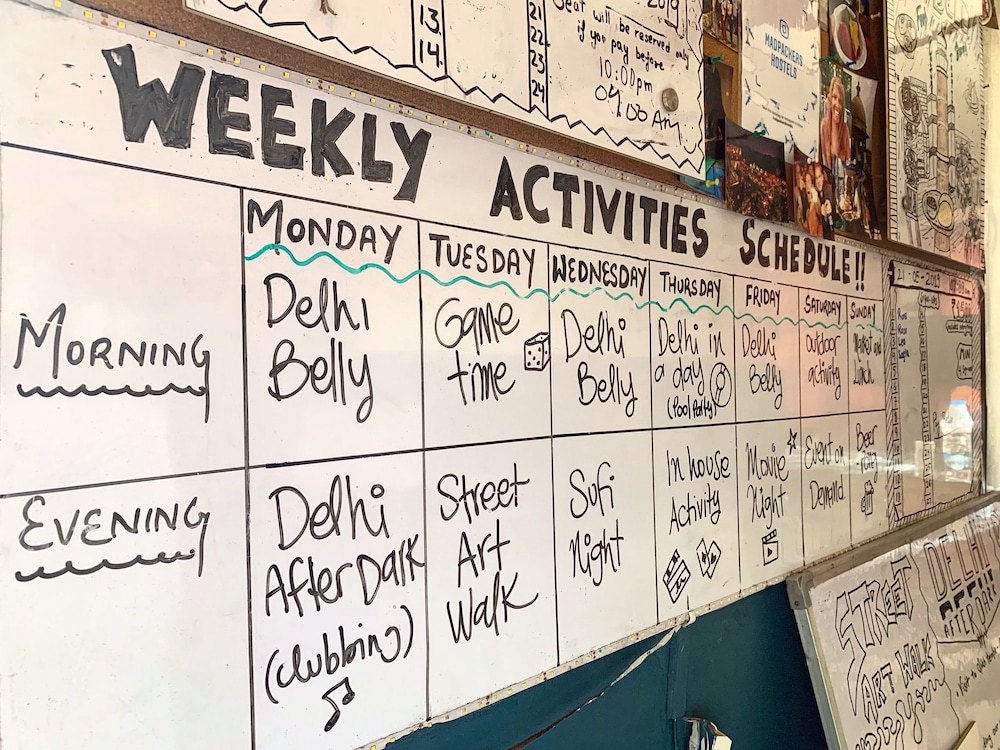 13.
14.
21
22
23
24
2019
Seat will be reserved only
if you pay before
10:00pm
04:00 Am
MADPACKERS
HOSTELS
WEEKLY ACTIVITIES SCHEDULE!!
MONDAY
TUESDAY
WEDNESDAY
THURSDAY
FRIDAY
SATURDAY
SUNDAY
MORNING
Delhi
Belly
Game
time
Delhi
Belly
Delhi in
a day
(Pool Party)
Delhi
Belly
Outdoor
activity
Lunch
EVENING
Delhi
After Dark
(clubbing)
Street
Art
Walk
Sufi
Night
In house
Activity
Movie
Night
Event on
Demand
Beer
21-05-2019
STREET
ART WALK
DELHI
AFTER DARK